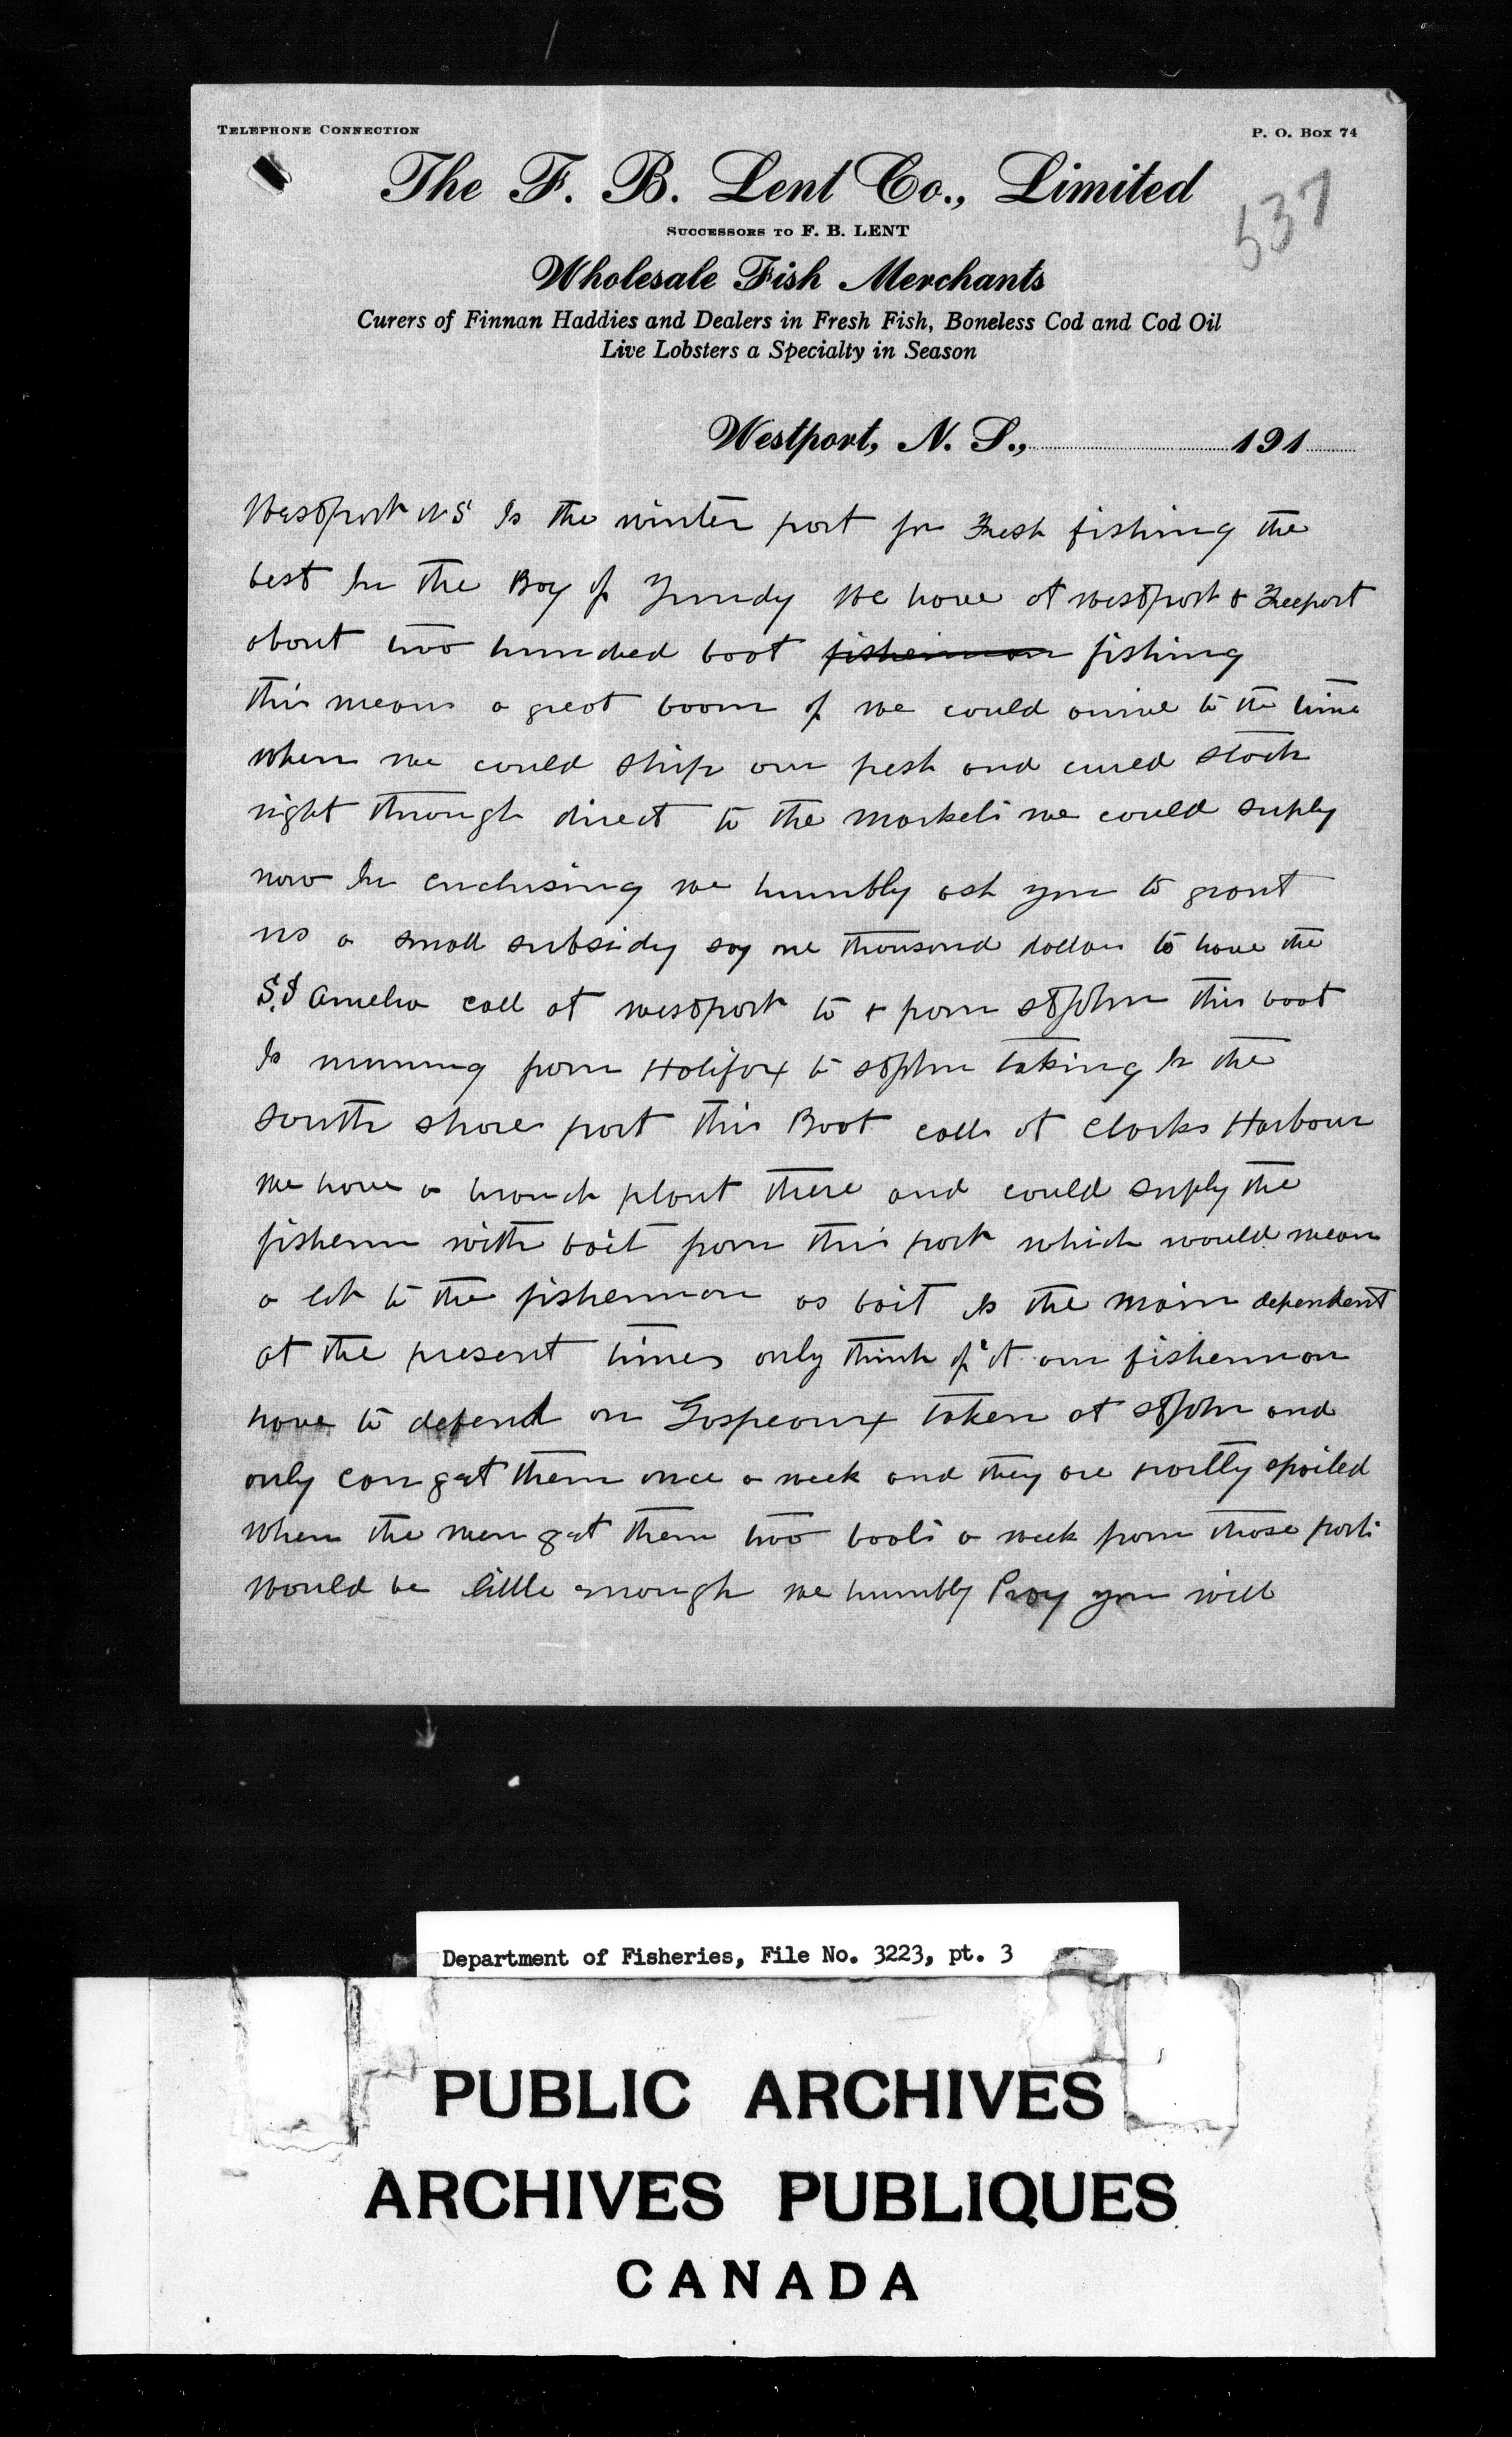 TELEPHONE CONNECTION
P. O. Box 74
The F. B. Lent Co., Limited
537
SUCCESSORS TO F. B. LENT
Wholesale Fish Merchants
Curers of Finnan Haddies and Dealers in Fresh Fish, Boneless Cod and Cod Oil
Live Lobsters a Specialty in Season
Westport, N. S., 191
Westport N S Is the winter port for Fresh fishing the
best In the Bay of Fundy We have at westport & Freeport
about two hundred boat fisherman fishing
this means a great boom if we could arrive to the time
when we could ship our fresh and cured stock
right through direct to the markets we could suply
now In enclusing we humbly ask you to grant
us a small subsidy say one thousand dollars to have the
S.S Amelia call at westport to & from St John this boat
Is running from Halifax to St John taking In the
south shore port this Boat calls at Clarks Harbour
we have a branch plant there and could suply the
fishermn with bait from this port which would mean
a lot to the fisherman as bait Is the main dependent
at the present times only think of it our fisherman
have to depend on Gaspeaux taken at St John and
only can get them once a week and they are partly spoiled
when the men get them two boats a week from those ports
would be little enough we humbly Pray you will
Department of Fisheries, File No. 3223, pt. 3
PUBLIC ARCHIVES
ARCHIVES PUBLIQUES
CANADA